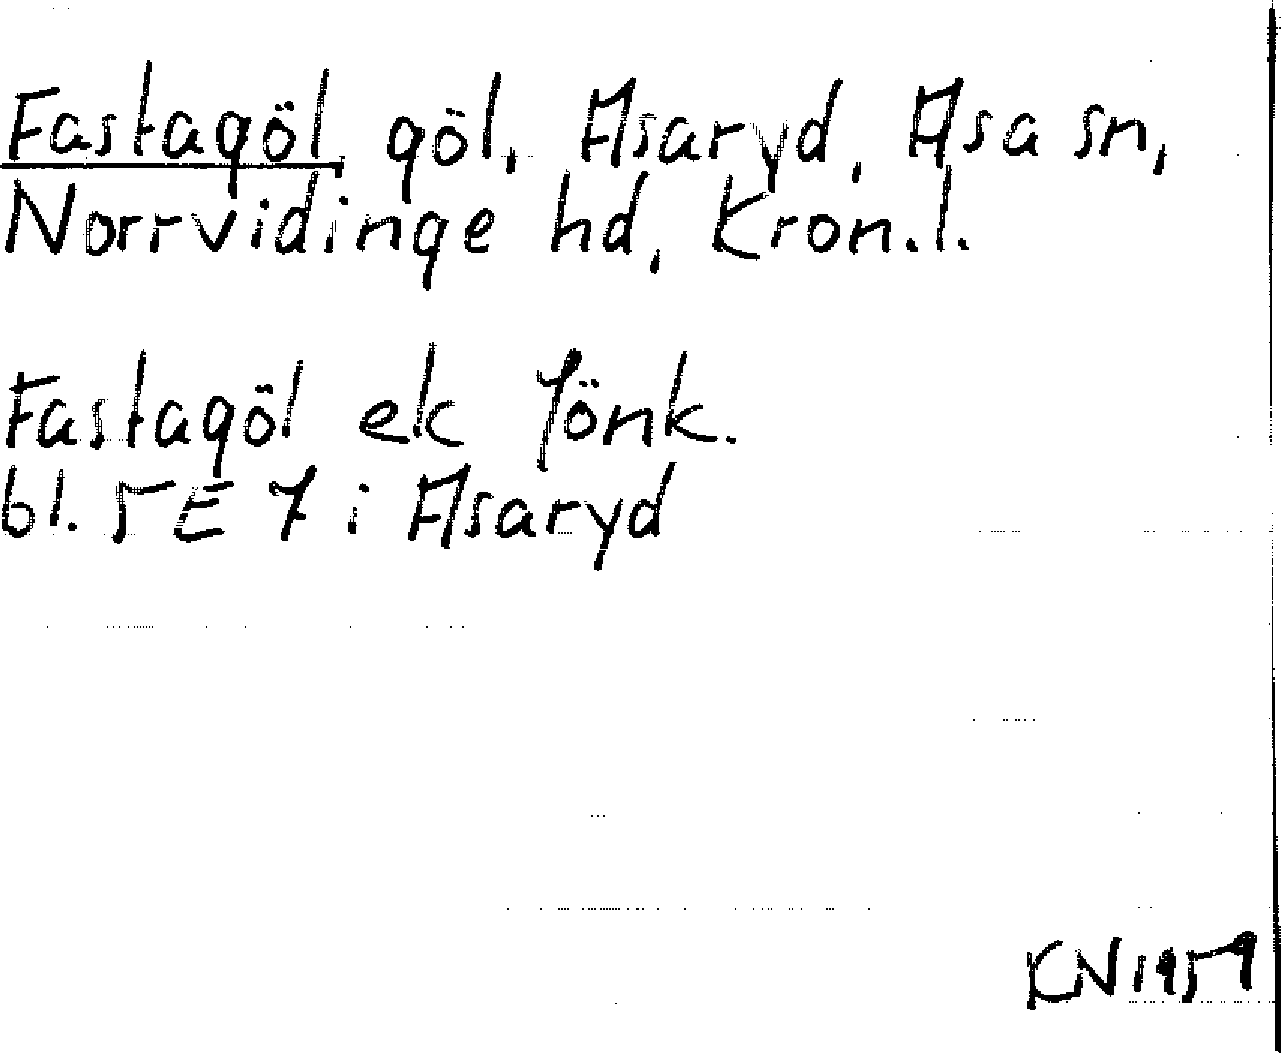 Fastagöl, göl, Asaryd, Asa sn,
Norrvidinge hd, Kron.l.
Fastagöl ek Jönk.
bl. 5E7 i Asaryd
KN 1959